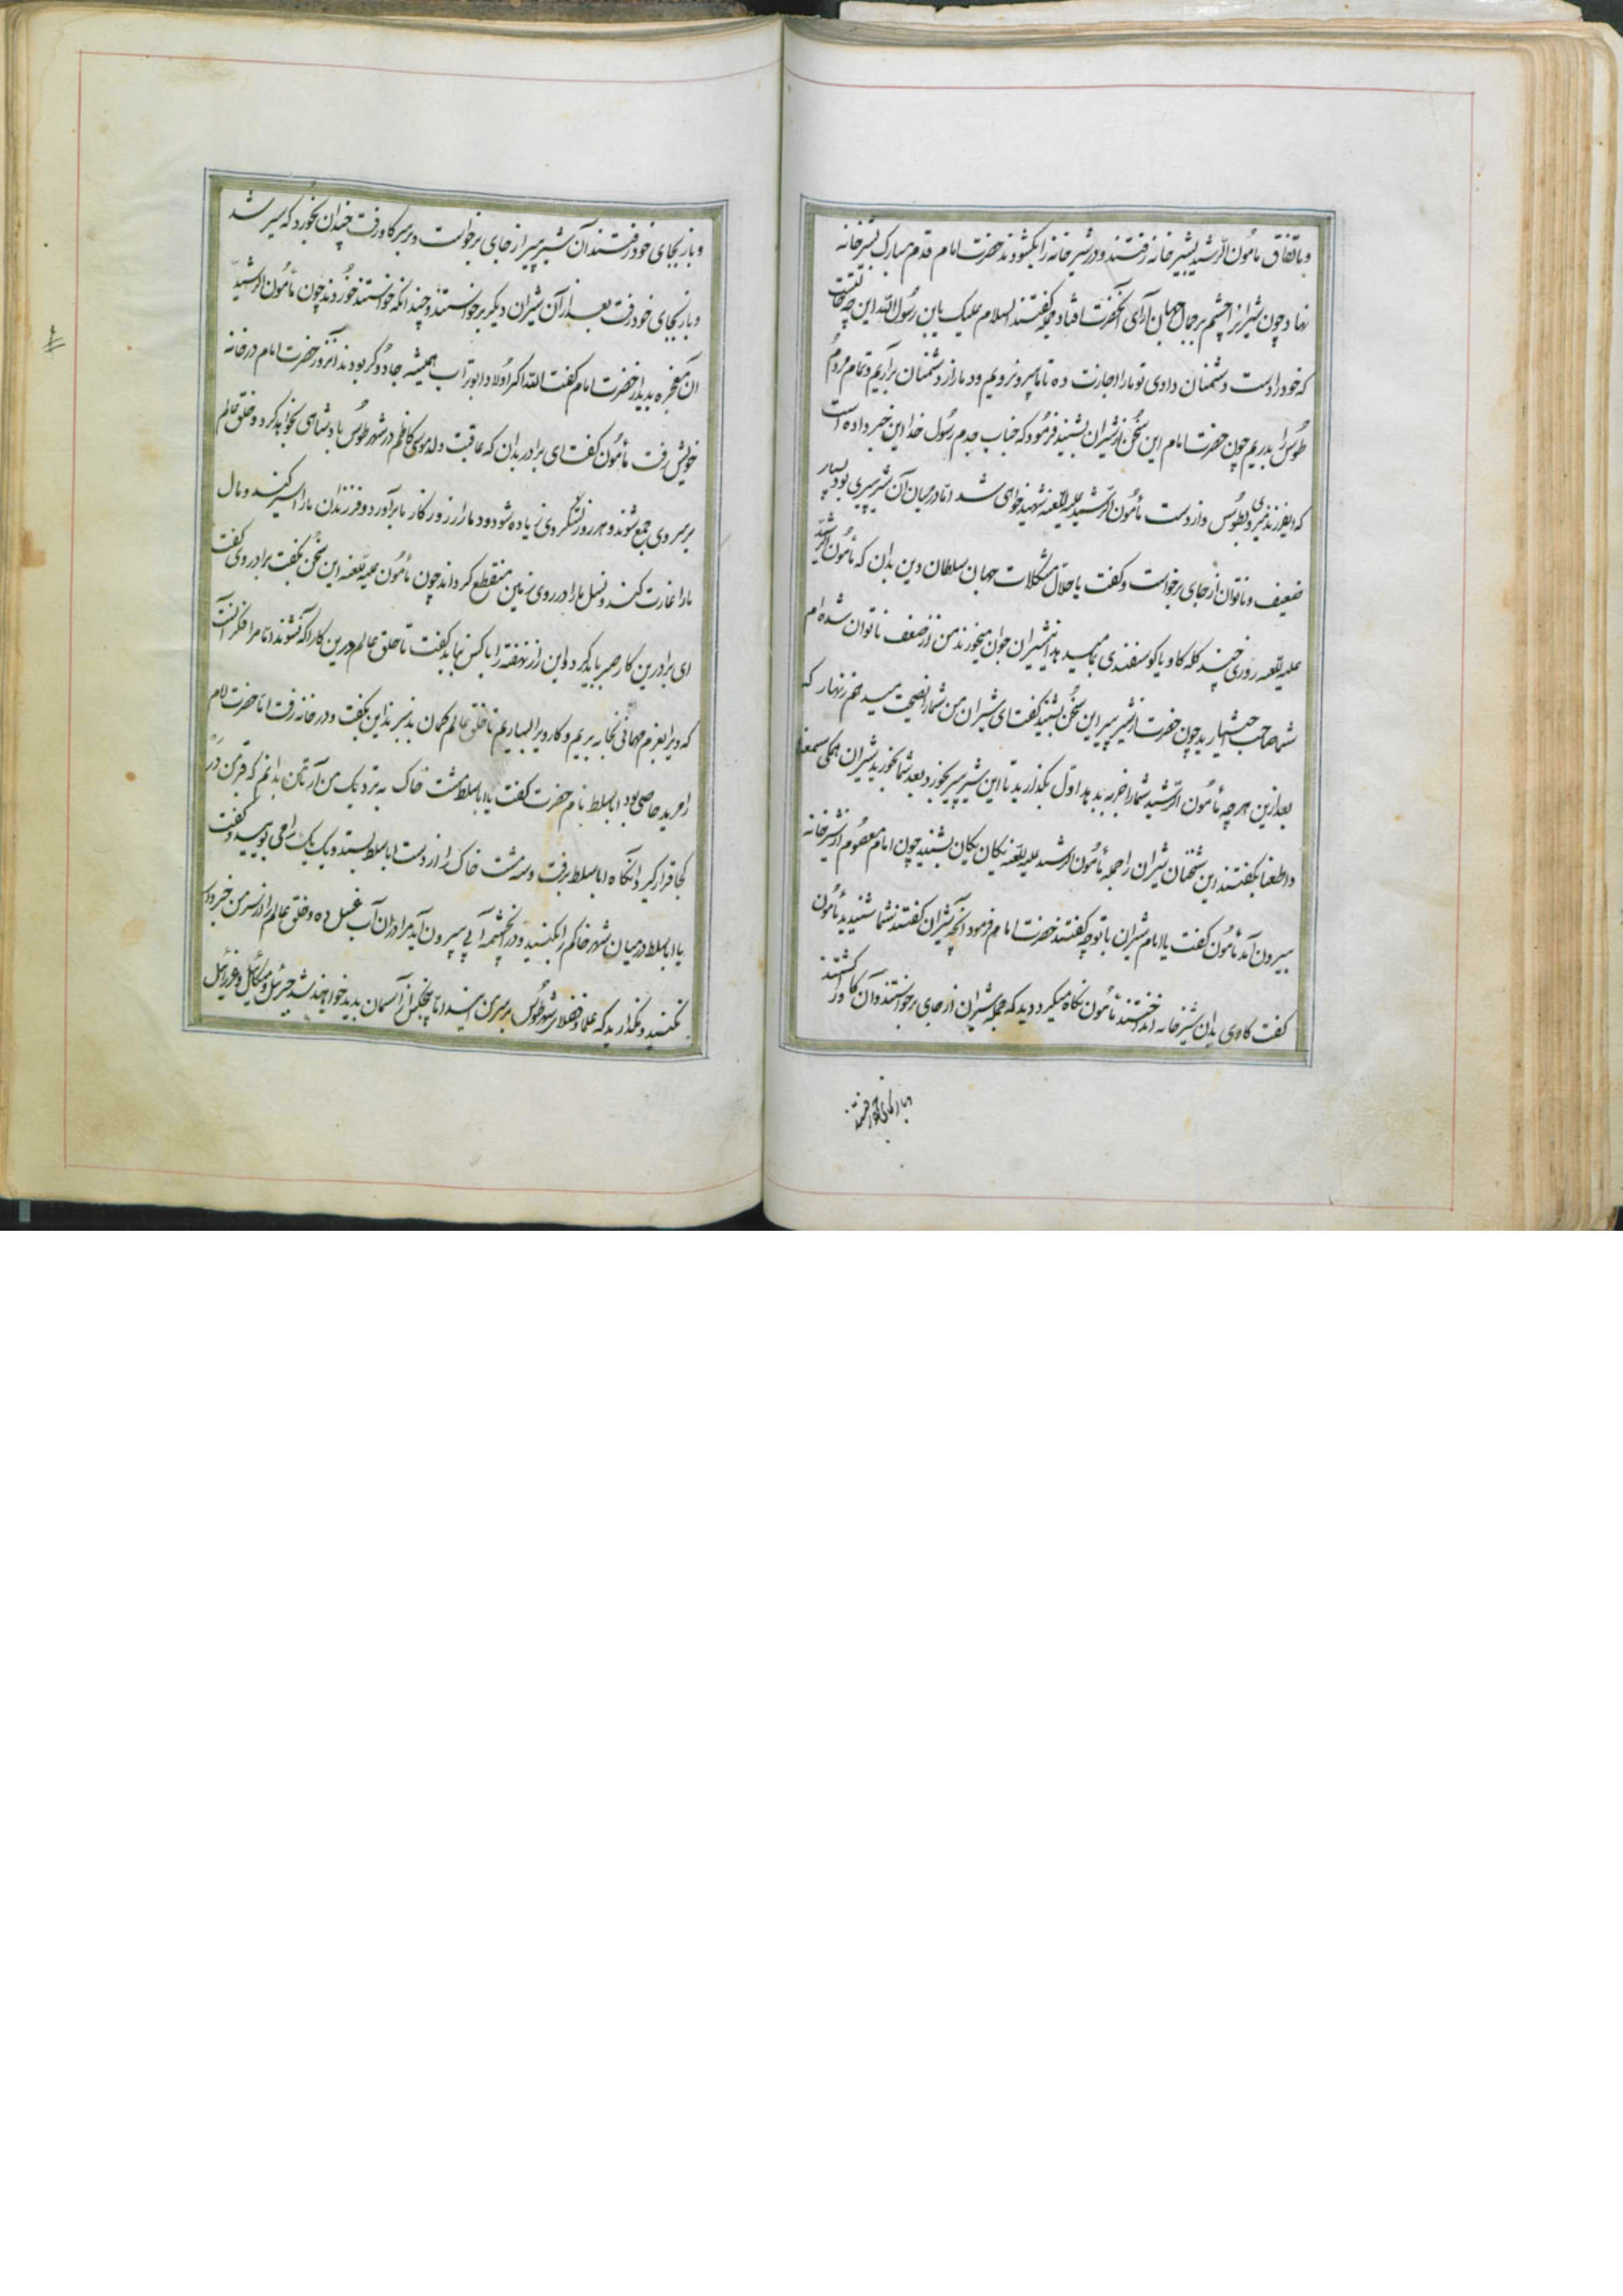 وباتفاق مأمون الرشید بشیر خانه رفتند ودر شیر خانه را بکشودند حضرت امام قدم مبارک بشیر خانه
نهاد چون شیرانرا چشم بر جمال جهان آرای آنحضرت افتاد جمله کفتند السلام علیک یابن رسول الله این چه حالتست
که خود را بدست دشمنان دادی تو مارا اجازت ده تا ما بیرون رویم ودمار از دشمنان برآریم وتمام مردم
طوس را بدریم چون حضرت امام این سخن از شیران بشنید فرمود که جناب جدم رسول خدا این خبر داده است
که ایفرزند بطوس واز دست مأمون الرشید علیه اللعنه شهید خواهی شد اما در میان آن شیر پیری بود بسیار
ضعیف وناتوان از جای برخواست وکفت یا حلال مشکلات جهان سلطان دین بدان که مأمون الرشید
علیه اللعنه روزی چند کله کاو یا کوسفندی بما میدهد این شیران جوان میخورند من از ضعف ناتوان شده ام
شما صاحب اختیارید چون حضرت از شیر پیر این سخن بشنید کفت ای شیران من شما را نصیحت میدهم زنهار که
بعد ازین هر چه مأمون الرشید شما را بدهد اول بکذارید تا این شیر پیر بخورد وبعد شما بخورید شیران همکی سمعنا
واطعنا بکفتند این سخنان شیران را جمله مأمون الرشید علیه اللعنه یکان یکان بشنید چون امام معصوم از شیر خانه
بیرون آمد مأمون کفت یا امام شیران با تو چه کفتند حضرت امام فرمود آنچه شیران کفتند شما شنیدید مأمون
کفت کاوی بدان شیر خانه انداختند مأمون نکاه میکرد دید که جمله شیران از جای برخواستند وآن کاو را کشتند
وباز بجای خود رفتند
وباز بجای خود رفتند آن شیر پیر از جای برخواست وبر سر کاو رفت چندان بخورد که سیر شد
وباز بجای خود رفت بعد از آن شیران دیکر برخواستند وچندانکه خواستند خوردند چون مأمون الرشید
آن معجزه بدید از حضرت امام کفت الله اکبر اولاد ابوتراب همیشه جادوکر بودند آنروز حضرت امام در خانه
خویش رفت مأمون کفت ای برادر بدان که عاقبت ولد موسی کاظم در شهر طوس پادشاهی بخواهد کرد وخلق عالم
بر سر وی جمع شوند وهر روز لشکر وی زیاده شود ودمار از روزکار ما برآورد وفرزندان ما را اسیر کنند ومال
مارا غارت کنند ونسل مارا در روی زمین منقطع کرداند چون مأمون علیه اللعنه این سخن بکفت برادر وی کفت
ای برادر این کار صبر باید کرد واین راز نهفته را با کس نباید کفت تا خلق عالم درین کار آکه نشوند اما مرا فکر آنست
که ویرا بعزم مهمانی بخانه بریم وکار ویرا بسازیم تا خلق عالم کمان بد نبرند این بکفت ودر خانه رفت اما حضرت امام
را مرید خاصی بود اباسلط نام حضرت کفت یا اباسلط مشت خاک به نزدیک من آر تا من بدانم که قبر من در
کجا قرار کیرد آنکاه اباسلط برفت وسه مشت خاک را از دست اباسلط بستد ویک یک را می بویید وکفت
یا اباسلط در میان شهر خاکم را بکنید ودر آنجا چشمه آبی بیرون آید مرا در آن آب غسل ده وخلق عالم را از سر من خبر دار
نکنید ونکذارید که علما وفضلای شهر طوس بر سر من آیند اما پنجکس از آسمان پدید خواهند شد جبرئیل ومیکائیل وعزرائیل